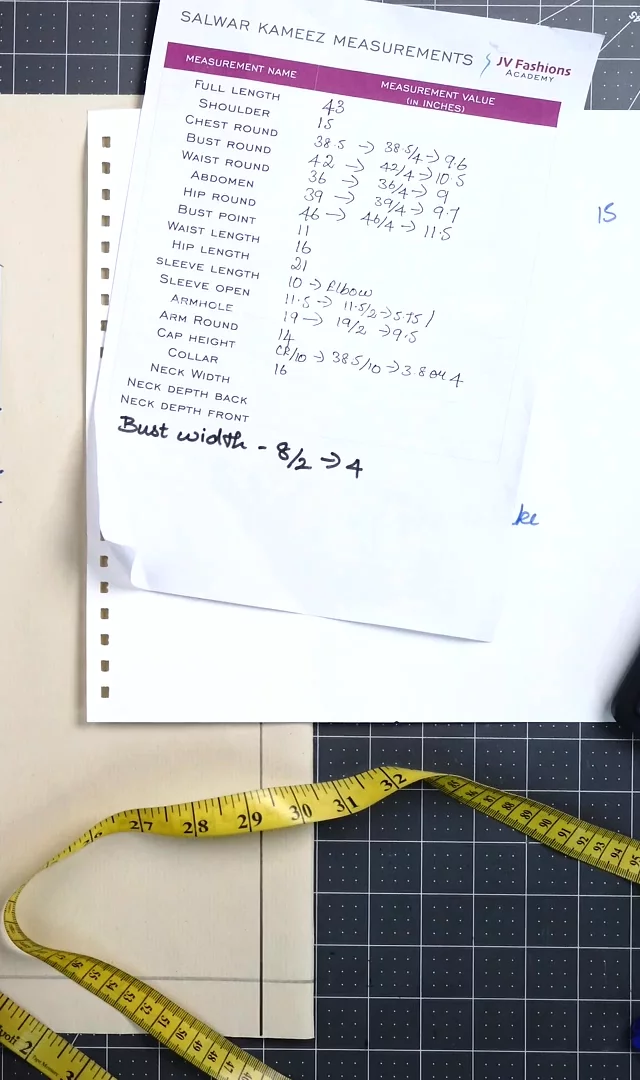 SALWAR KAMEEZ MEASUREMENTS
JV Fashions
ACADEMY
MEASUREMENT NAME MEASUREMENT VALUE
(IN INCHES)
FULL LENGTH 43
SHOULDER 15
CHEST ROUND 38.5 → 38.5/4 → 9.6
BUST ROUND 42 → 42/4 → 10.5
WAIST ROUND 36 → 36/4 → 9
ABDOMEN 39 → 39/4 → 9.7
HIP ROUND 46 → 46/4 → 11.5
BUST POINT 11
WAIST LENGTH 16
HIP LENGTH 21
SLEEVE LENGTH 10 → Elbow
SLEEVE OPEN 11.5 → 11.5/2 → 5.75 /
ARMHOLE 19 → 19/2 → 9.5
ARM ROUND 14
CAP HEIGHT CR/10 → 38.5/10 → 3.8 or 4
COLLAR 16
NECK WIDTH
NECK DEPTH BACK
NECK DEPTH FRONT
Bust width - 8/2 → 4
15
ke
27 28 29 30 31 32
88 89 90 91 92 93 94 95
55 54 53 52 51 50 49 48 47
2 3